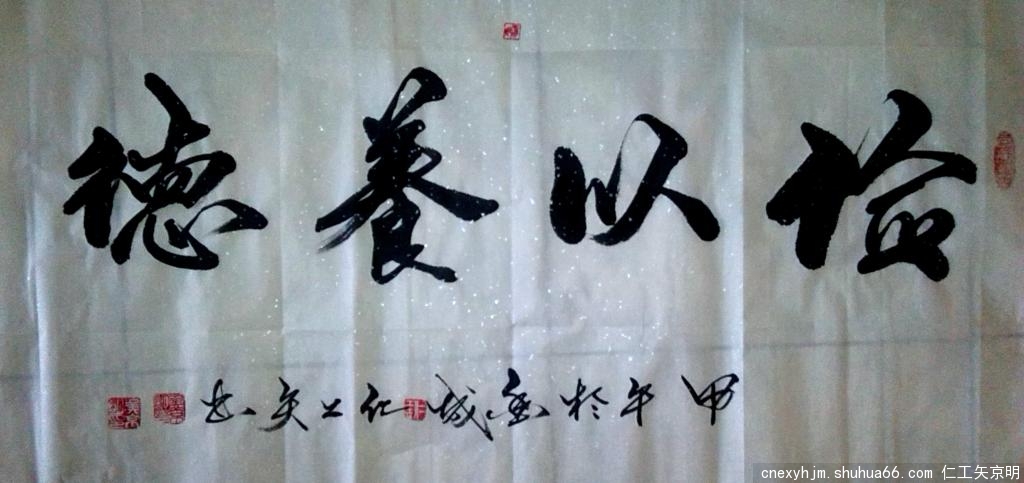 俭以养德
甲午于金城仁工矢书
cnexyhjm.shuhua66.com 仁工矢京明